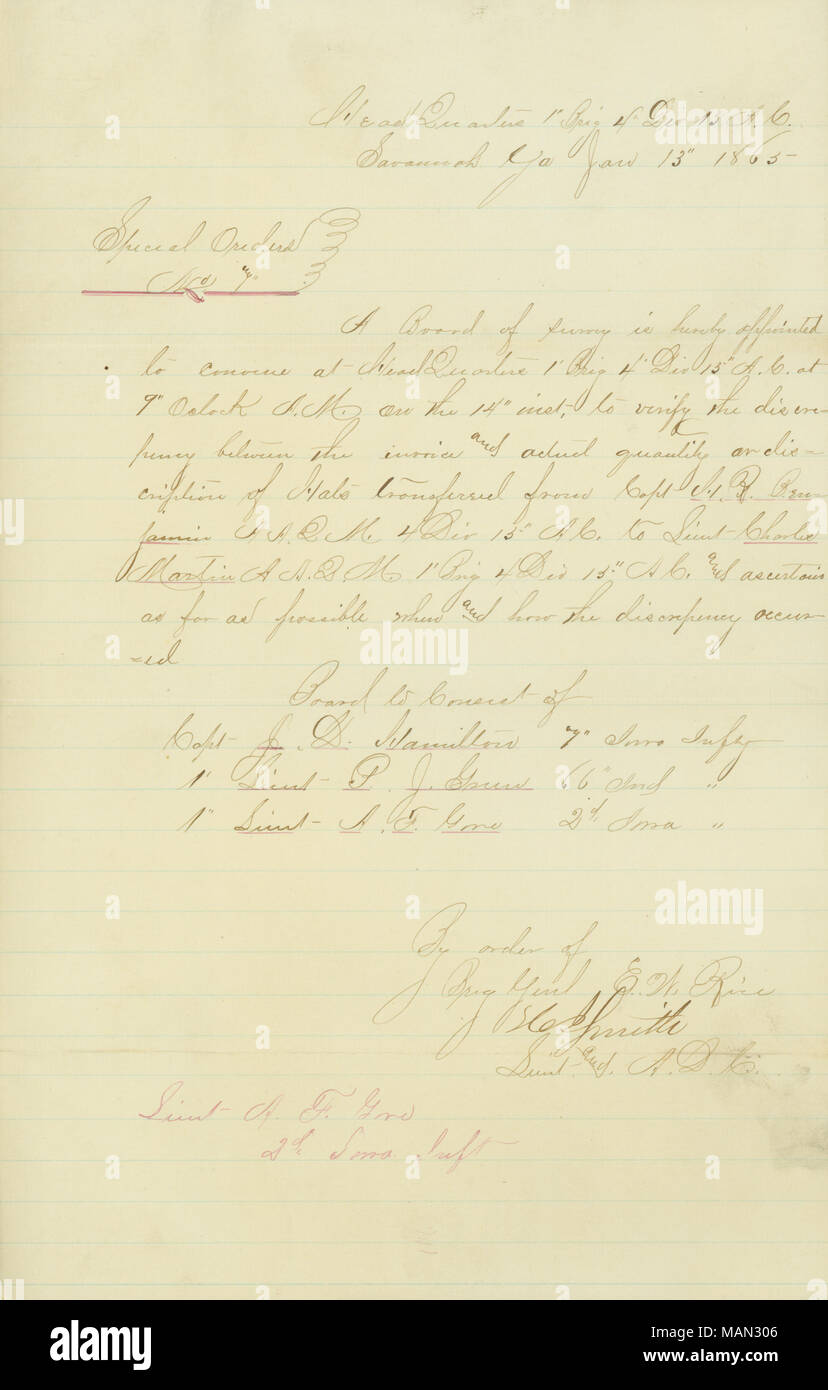 Head Quarters 1" Brig 4" Div 15 A.C.
Savannah Ga Jan 13" 1865
Special Orders
No "7"
A Board of survey is hereby appointed
to convene at Head Quarters 1" Brig 4" Div 15" A.C. at
9" Oclock A.M. on the 14" inst, to verify the discre-
pency between the invoice and actual quantity or dis=
cription of Hats transfered from Capt H. R. Ben-
jamin A.A.Q.M. 4 Div 15" A.C. to Lieut Charles
Martin A A.Q.M. 1" Brig 4 Div 15" A.C. and ascertain
as far as possible when and how the discrepency occur-
=ed
Board to Consist of
Capt J. D. Hamilton 7" Iowa Infty
1" Lieut P. J. Green 66" Ind "
1" Lieut A. F. Gore 2d. Iowa "
By order of
Brig Genl E. W. Rice
Smith
Lieut and. A.D.C.
Lieut A. F. Gore
2d. Iowa Inft
alamy
alamy
alamy
alamy stock photo
alamy
Image ID: MAN306
www.alamy.com